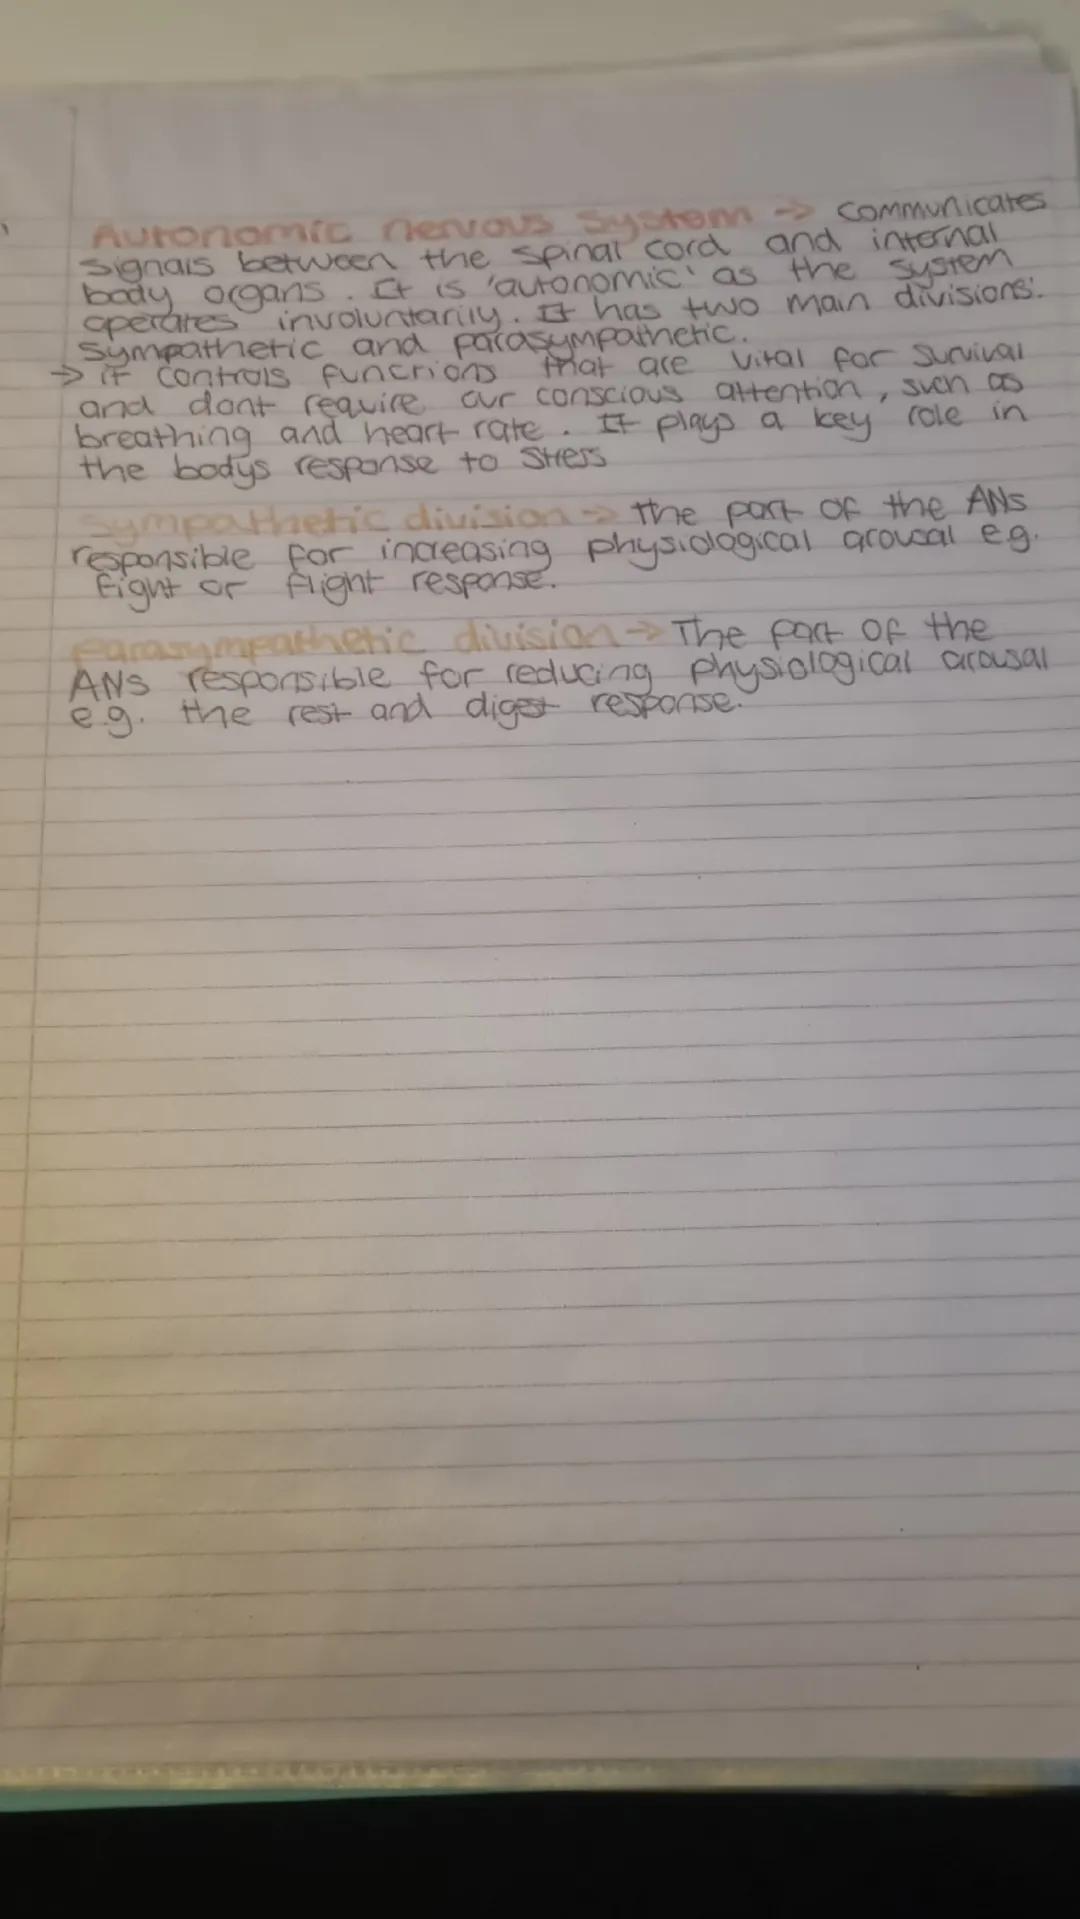 Autonomic nervous system → communicates
signals between the spinal cord and internal
body organs. It is 'autonomic' as the system
operates involuntarily. It has two main divisions:
sympathetic and parasympathetic.
→ it controls functions that are vital for survival
and dont require our conscious attention, such as
breathing and heart rate. It plays a key role in
the bodys response to stress
sympathetic division → the part of the ANS
responsible for increasing physiological arousal e.g.
fight or flight response.
parasympathetic division → The part of the
ANS responsible for reducing physiological arousal
e.g. the rest and digest response.